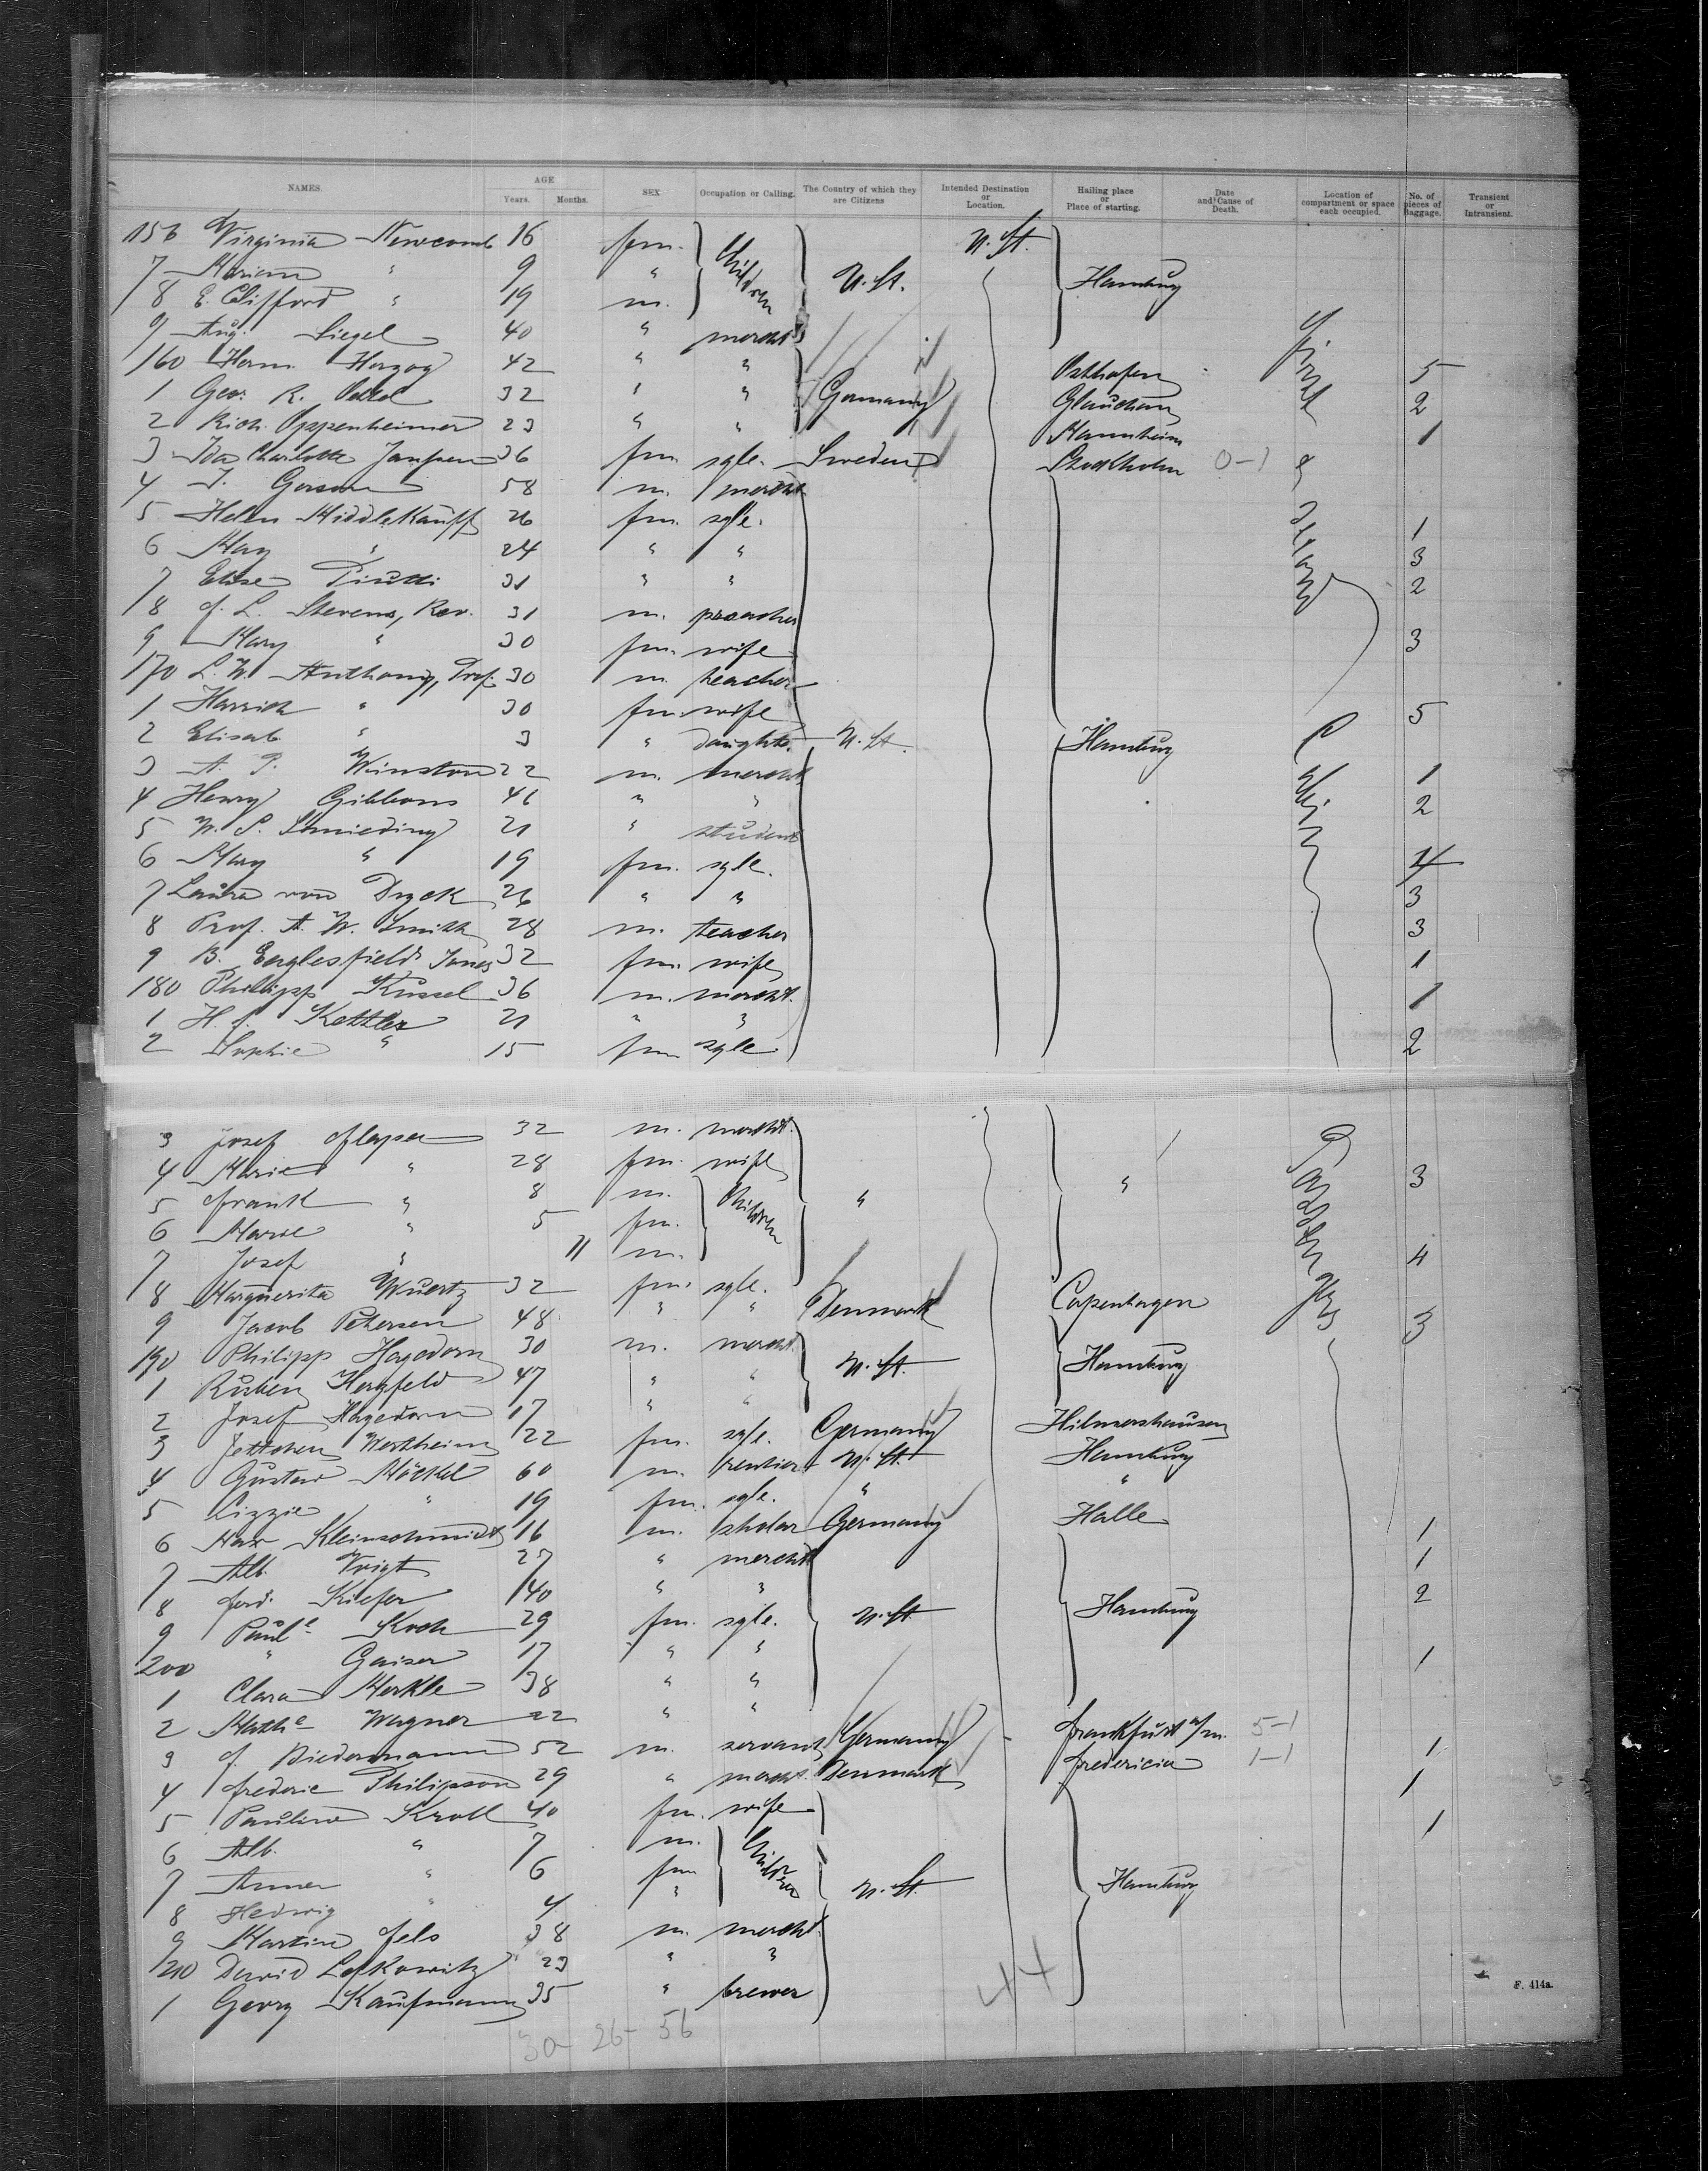 NAMES. AGE Years. Months. SEX Occupation or Calling. The Country of which they are Citizens Intended Destination or Location. Hailing place or Place of starting. Date and Cause of Death. Location of compartment or space each occupied. No. of pieces of Baggage. Transient or Intransient.
156 Virginia Newcomb 16 fm. Children U. St.
7 Marian " 9 " U. St. Hamburg
8 E. Clifford " 19 m.
9 Aug. Siegel 40 " mercht
160 Herm. Herzog 42 " " Osthofen 5
1 Geo. R. 32 " " Germany Glauchau 2
2 Rich. Oppenheimer 23 " " Mannheim 1
3 Ida Charlotte Janssen 36 fm. sgle. Sweden Stockholm 0-1
4 Gerson 58 m. mercht
5 Helen Middlekauff 26 fm. sgle. 1
6 May " 24 " " 3
7 Elise 31 " " 2
8 J. L. Stevens, Rev. 31 m. preacher
9 Mary " 30 fm. wife 3
170 L. W. Anthony, Prof. 30 m. teacher
1 Harriet " 30 fm. wife 5
2 Elisab. " 3 " daught. U. St. Hamburg
3 A. P. Winston 22 m. mercht 1
4 Henry Gibbons 46 " " 2
5 W. S. Schmieding 21 " student
6 May " 19 fm. sgle. 4
7 Laura von Dyck 26 " " 3
8 Prof. A. W. Smith 28 m. teacher 3
9 B. Eaglesfield Jones 32 fm. wife 1
180 Philipp Küssel 36 m. mercht. 1
1 H. J. Kettler 21 " "
2 Sophie " 15 fm sgle 2
3 Josef 32 m. mercht.
4 Marie " 28 fm. wife " 3
5 Frank " 8 m. Children "
6 Marie " 5 fm.
7 Josef " 11 m. 4
8 Marguerita Wuertz 32 fm. sgle.
9 Jacob Petersen 48 " " Denmark Copenhagen 3
190 Philipp Hagedorn 30 m. mercht. U. St. Hamburg
1 Ruben Herzfeld 47 " "
2 Josef Hagedorn 17 " "
3 Jettchen Wertheim 22 fm. sgle. Germany Hilmershausen
4 Gustav Möckel 60 m. rentier U. St. Hamburg
5 Lizzie " 19 fm. sgle. " "
6 Max Kleinschmidt 16 m. scholar Germany Halle 1
7 Alb. Voigt 27 " mercht 1
8 Ferd. Kiefer 40 " " 2
9 Paule Koch 29 fm. sgle. U. St Hamburg
200 " Gaiser 17 " " 1
1 Clara Merkle 38 " "
2 Mathe Wagner 22 " "
3 J. Biedermann 52 m. servant Germany Frankfurt a/m. 5-1 1
4 Frederic Philipson 29 " mercht. Denmark Fredericia 1-1 1
5 Pauline Kroll 40 fm. wife 1
6 Alb. " 7 m. Children
7 Anna " 6 fm U. St. Hamburg
8 Hedwig " 4 "
9 Martin Fels 38 m. mercht.
210 David Lefkowitz 23 " "
1 Georg Kaufmann 35 " brewer 44
F. 414a.
30 - 26 - 56